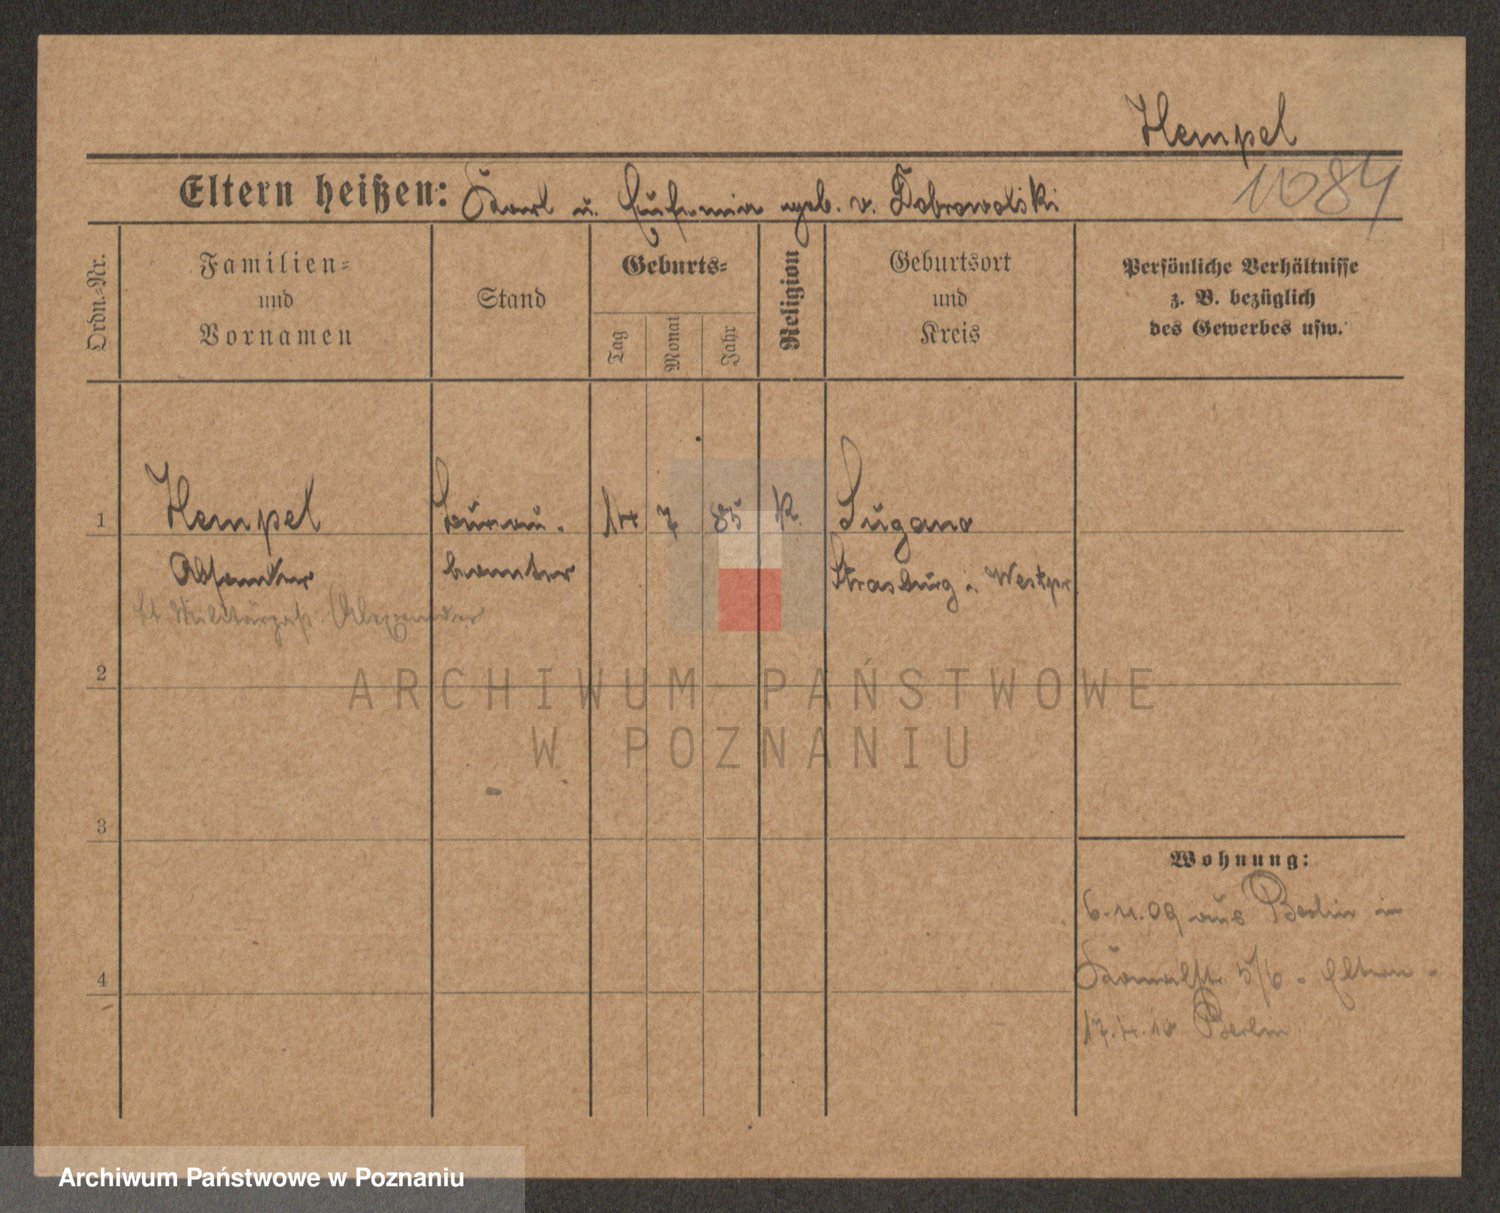 Hempel
Eltern heißen: Karl u. Eufemia geb. v. Dobrowolski
11084
Ordn.-Nr.
Familien-
und
Vornamen
Stand
Geburts-
Tag
Monat
Jahr
Religion
Geburtsort
und
Kreis
Persönliche Verhältnisse
z. B. bezüglich
des Gewerbes usw.
1
Hempel
Büreau-
14 7 85 k.
Lugano
beamter
Strasburg. Westpr.
lt Militärpaß Alexander
2
3
4
Wohnung:
6.11.09 aus Berlin in
5/6 - Eltern -
17.4.10 Berlin
ARCHIWUM PAŃSTWOWE
W POZNANIU
Archiwum Państwowe w Poznaniu